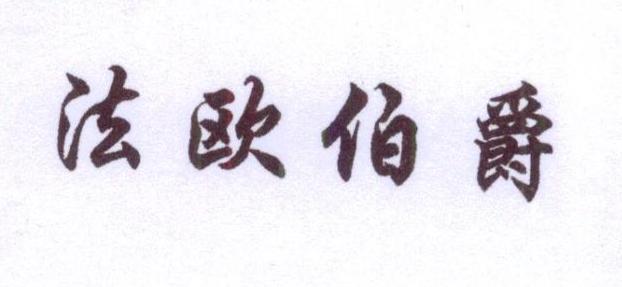 法欧伯爵